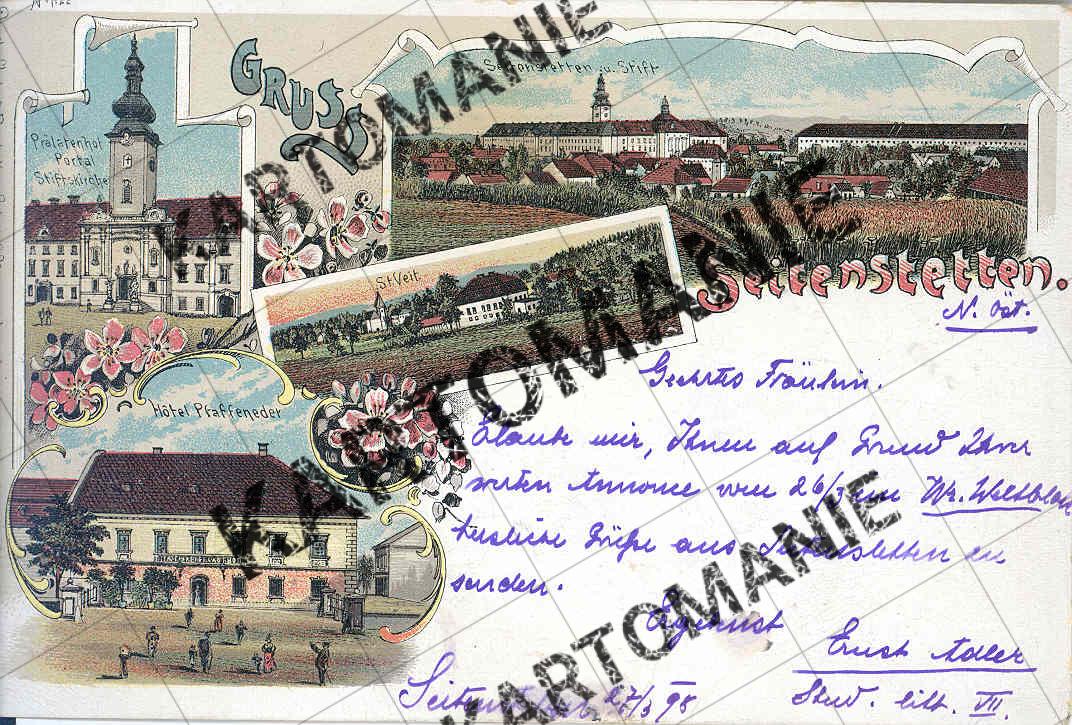 GRUSS
Seitenstetten u. Stift
Prälatenhof
Portal
Stiftskirche
St. Veit.
Seitenstetten.
N. Öst.
Hôtel Pfaffeneder
Geehrtes Fräulein.
Erlaube mir, Ihnen auf Grund Ihrer
werten Annonce vom 26/3 im Wr. Weltblatt
herzliche Grüße aus Seitenstetten zu
senden.
Ergebenst
Ernst Adler
Stud. litt. VII.
Seitenstetten 27/3 98
KARTOMANIE
KARTOMANIE
KARTOMANIE